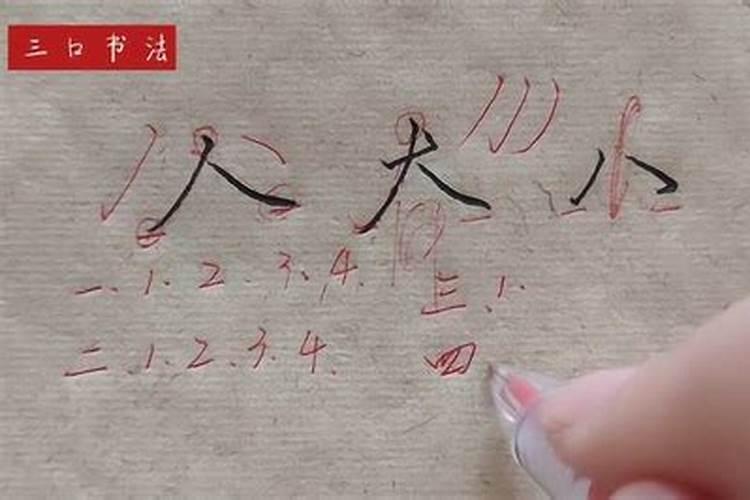 三口书法
人 大 小
一、1、2、3、4、 三、1、
二、1、2、3、4、 四